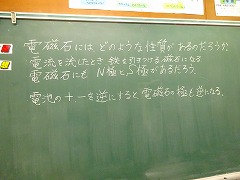 電磁石にはどのような性質があるのだろうか。
電流を流したとき鉄を引きつける磁石になる
電磁石にも N極とS極があるだろう。
電池の+,-を逆にすると電磁石の極も逆になる。